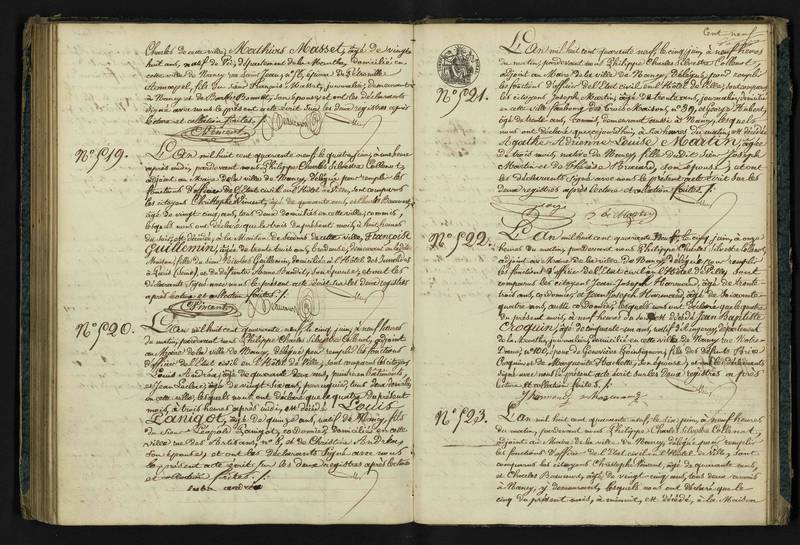 Charles de cette ville, Mathias Masset, âgé de vingt
huit ans, natif de Pri, département de la Meurthe, domicilié en
cette ville de Nancy rue Saint Jean, n° 16, époux de Pétronille
fils de François Masset, journalier, demeurant
à Nancy et de son épouse et ont les déclarants
signé avec nous le présent acte écrit sur les deux registres après
lecture et collation faites ./.
Vincent
N° 519.
L'An mil huit cent quarante neuf le quatre juin, à une heure
après midi, pardevant nous Philippe Charles Silvestre Collenot,
adjoint au Maire de la ville de Nancy, délégué pour remplir les
fonctions d'officier de l'État civil en l'Hôtel de ville, sont comparus
les citoyens Christophe Vincent, âgé de quarante ans, et Charles
âgé de vingt cinq ans, tous deux domiciliés en cette ville, commis,
lesquels nous ont déclaré que le trois du présent mois, à huit heures
du soir, est décédée, à la Maison de Secours de cette ville, Françoise
Guillemin, âgée de trente trois ans, demeurant
Maison, fille de Nicolas Guillemin, domicilié à l'Hôtel des Invalides
à Paris (Seine), et de défunte son épouse; et ont les
déclarants signé avec nous le présent acte écrit sur les deux registres
après lecture et collation faites ./.
Vincent
N° 520.
L'An mil huit cent quarante neuf, le cinq juin, à neuf heures
du matin, pardevant nous Philippe Charles Silvestre Collenot, adjoint
au Maire de la ville de Nancy, délégué pour remplir les fonctions
d'officier de l'État civil en l'Hôtel de Ville, sont comparus les citoyens
Louis André, âgé de quarante deux ans, peintre en bâtiments,
et Jean âgé de vingt six ans, perruquier, tous deux domiciliés
en cette ville, lesquels nous ont déclaré que le quatre du présent
mois, à trois heures après midi, est décédé Louis
Lanigot, âgé de quinze ans, natif de Nancy, fils
de Léopold Lanigot, cordonnier, domicilié en cette
ville rue des Artisans, n° 8, et de Christine André,
son épouse; et ont les déclarants signé avec nous
le présent acte écrit sur les deux registres après lecture
et collation faites ./.
Cent neuf
N° 521.
L'An mil huit cent quarante neuf, le cinq juin, à neuf heures
du matin, pardevant nous Philippe Charles Silvestre Collenot,
adjoint au Maire de la ville de Nancy, délégué pour remplir
les fonctions d'officier de l'État civil en l'Hôtel de Ville, sont comparus
les citoyens Joseph Martin, âgé de trente ans, journalier, domicilié
en cette ville, Faubourg des trois Maisons, n° 39, et
âgé de trente ans, commis, demeurant aussi à Nancy, lesquels
nous ont déclaré que aujourd'hui, à six heures du matin, est décédée
Agathe Adrienne Louise Martin, âgée
de trois mois, native de Nancy, fille dudit sieur Joseph
Martin et de son épouse; et ont
les déclarants signé avec nous le présent acte écrit sur les
deux registres après lecture et collation faites ./.
Martin
N° 522.
L'An mil huit cent quarante neuf, le cinq juin, à onze
heures du matin, pardevant nous Philippe Charles Silvestre Collenot,
adjoint au Maire de la ville de Nancy, délégué pour remplir
les fonctions d'officier de l'État civil en l'Hôtel de Ville, sont
comparus les citoyens Jean Joseph Harmand, âgé de trente
trois ans, cordonnier, et Jean Joseph Harmand, âgé de soixante
quatre ans, lesquels nous ont déclaré que le quatre
du présent mois, à neuf heures du soir est décédé Jean Baptiste
Croquin, âgé de cinquante un ans, natif d' département
de la Meurthe, journalier, domicilié en cette ville de Nancy rue Notre-
Dame, n° 100, époux de Geneviève fils des défunts
Croquin et de Marguerite son épouse; et ont les déclarants
signé avec nous le présent acte écrit sur les deux registres après
lecture et collation faites ./.
N° 523.
L'An mil huit cent quarante neuf, le six juin, à neuf heures
du matin, pardevant nous Philippe Charles Silvestre Collenot,
adjoint au Maire de la ville de Nancy, délégué pour remplir
les fonctions d'officier de l'État civil en l'Hôtel de Ville, sont
comparus les citoyens Christophe Vincent, âgé de quarante ans,
et Charles âgé de vingt cinq ans, tous deux commis
à Nancy, y demeurant, lesquels nous ont déclaré que le
cinq du présent mois, à minuit, est décédé, à la Maison